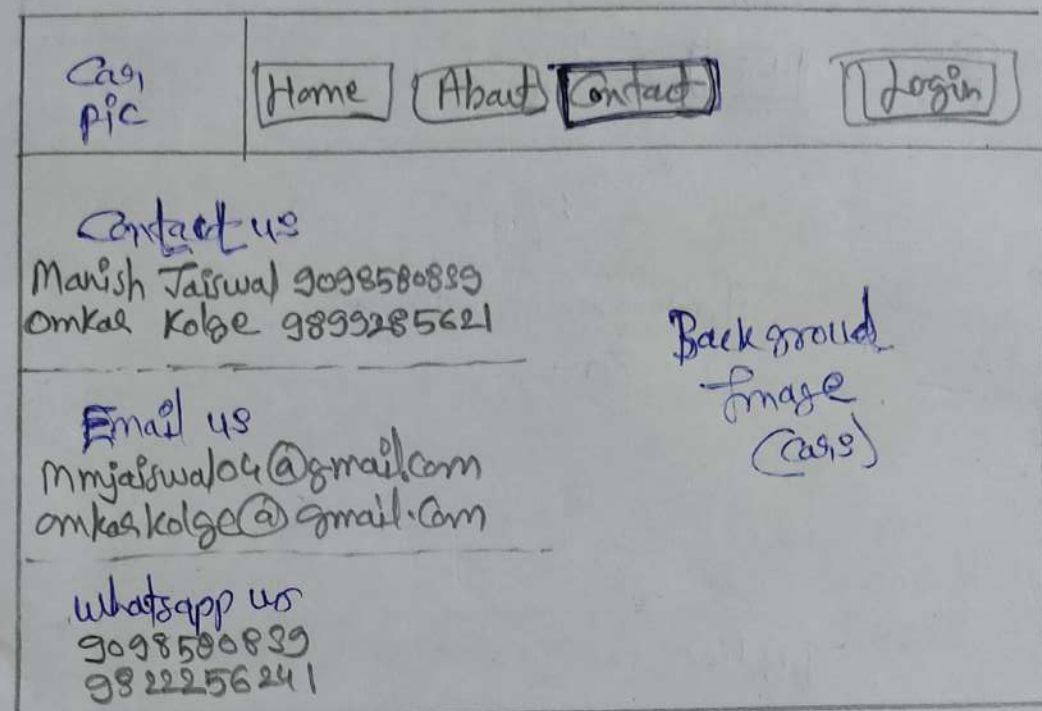 Car
pic
Home About Contact Login
Contact us
Manish Jaiswal 9098580839
Omkar Kolge 9899285621
Email us
mmjaiswal04@gmail.com
omkarkolge@gmail.com
Whatsapp us
9098580839
9822256241
Backgroud
Image
(Cars)